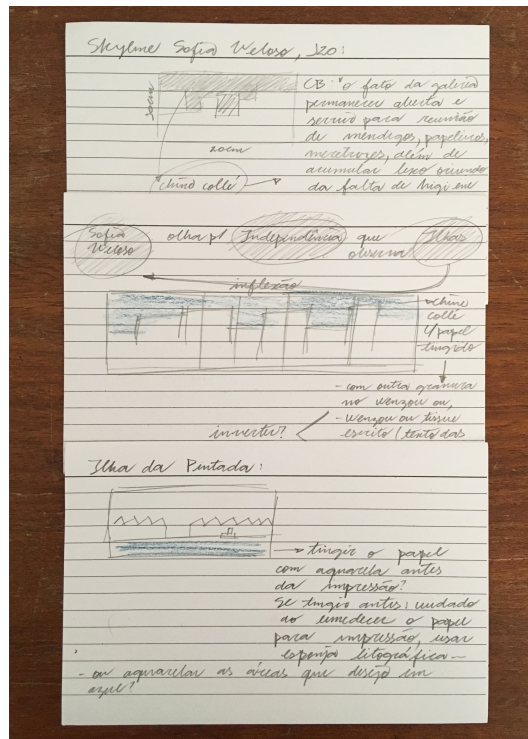 Skyline Sofia Veloso, 120:
30cm
20cm
"chine collé"
CB: "o fato da galeria
permanecer aberta e
servir para reunião
de mendigos, papeleiros,
meretrizes, além de
acumular lixo oriundo
da falta de higiene
Sofia Veloso olha p/ Independência que observa Ilhas
inflexão
chine
collé
c/ papel
tingido
- com outra gravura
no wenzou ou,
- wenzou ou tissue
escrito (texto das
inverter?
Ilha da Pintada:
tingir o papel
com aquarela antes
da impressão?
Se tingir antes: cuidado
ao umedecer o papel
para impressão, usar
esponja litográfica -
- ou aquarelar as áreas que desejo em
azul?